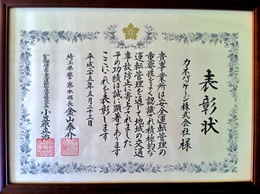 表彰状
カネパッケージ株式会社 様
貴事業所は安全運転管理の
重要性をよく認識され積極的な
運転管理を通じて地域の交通
事故防止に寄与された
その功績は誠に顕著であります
ここにこれを表彰します
平成二十五年五月二十三日
埼玉県警察本部長 金山泰介